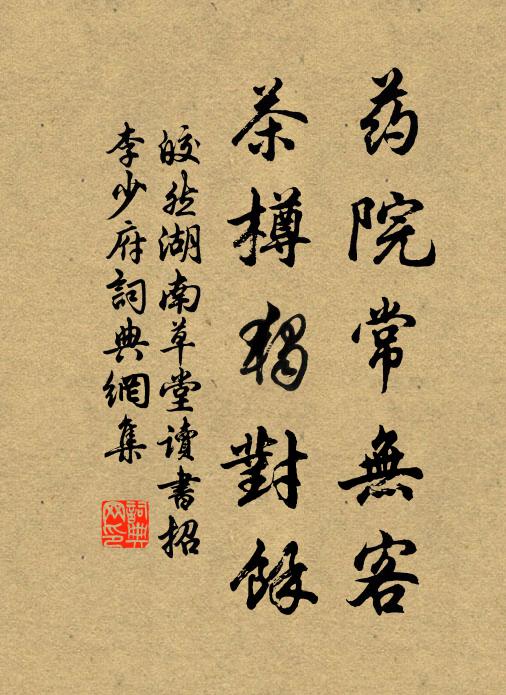 药院常無客
茶樽獨對餘
皎然湖南草堂讀書招
李少府詞典網集
詞典網印